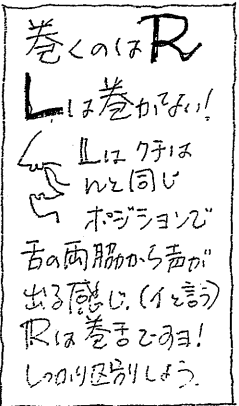 巻くのはR
Lは巻かない!
Lはクチは
nと同じ
ポジションで
舌の両脇から声が
出る感じ.(イと言う)
Rは巻舌ですヨ!
しっかり区別しよう.